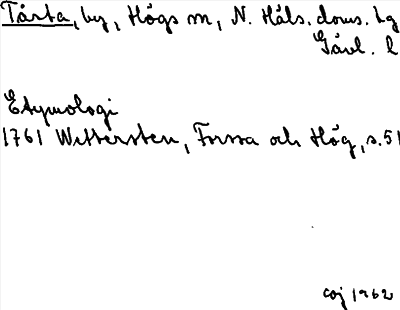 Tårta, by, Högs sn, N. Häls. doms. hg
Gävl. l
Etymologi
1761 Wettersten, Forssa och Hög, s. 51
1962